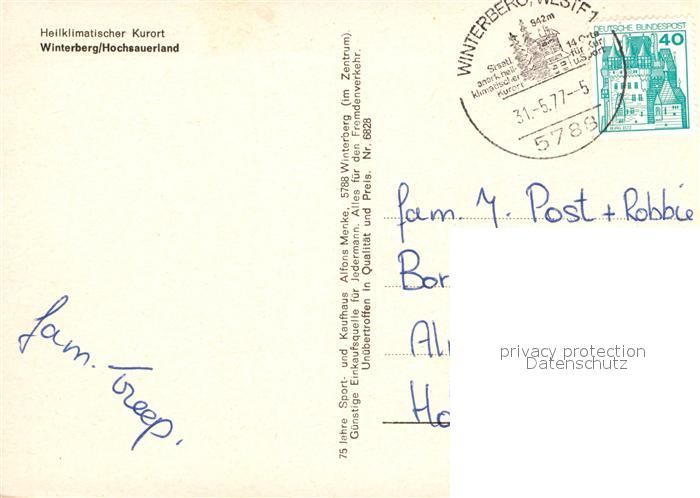 Heilklimatischer Kurort
Winterberg/Hochsauerland
WINTERBERG, WESTF 1
942m
Staatl.
anerk. heil-
klimatischer
Kurort
14 Orte
für Kur
u. Sport
31.-5.77--5
5788
DEUTSCHE BUNDESPOST
40
BURG ELTZ
75 Jahre Sport- und Kaufhaus Alfons Menke, 5788 Winterberg (im Zentrum).
Günstige Einkaufsquelle für Jedermann. Alles für den Fremdenverkehr.
Unübertroffen in Qualität und Preis. Nr. 6828
fam. Y. Post + Robbie
Bor
Al
Ho
privacy protection
Datenschutz
fam. Treep.